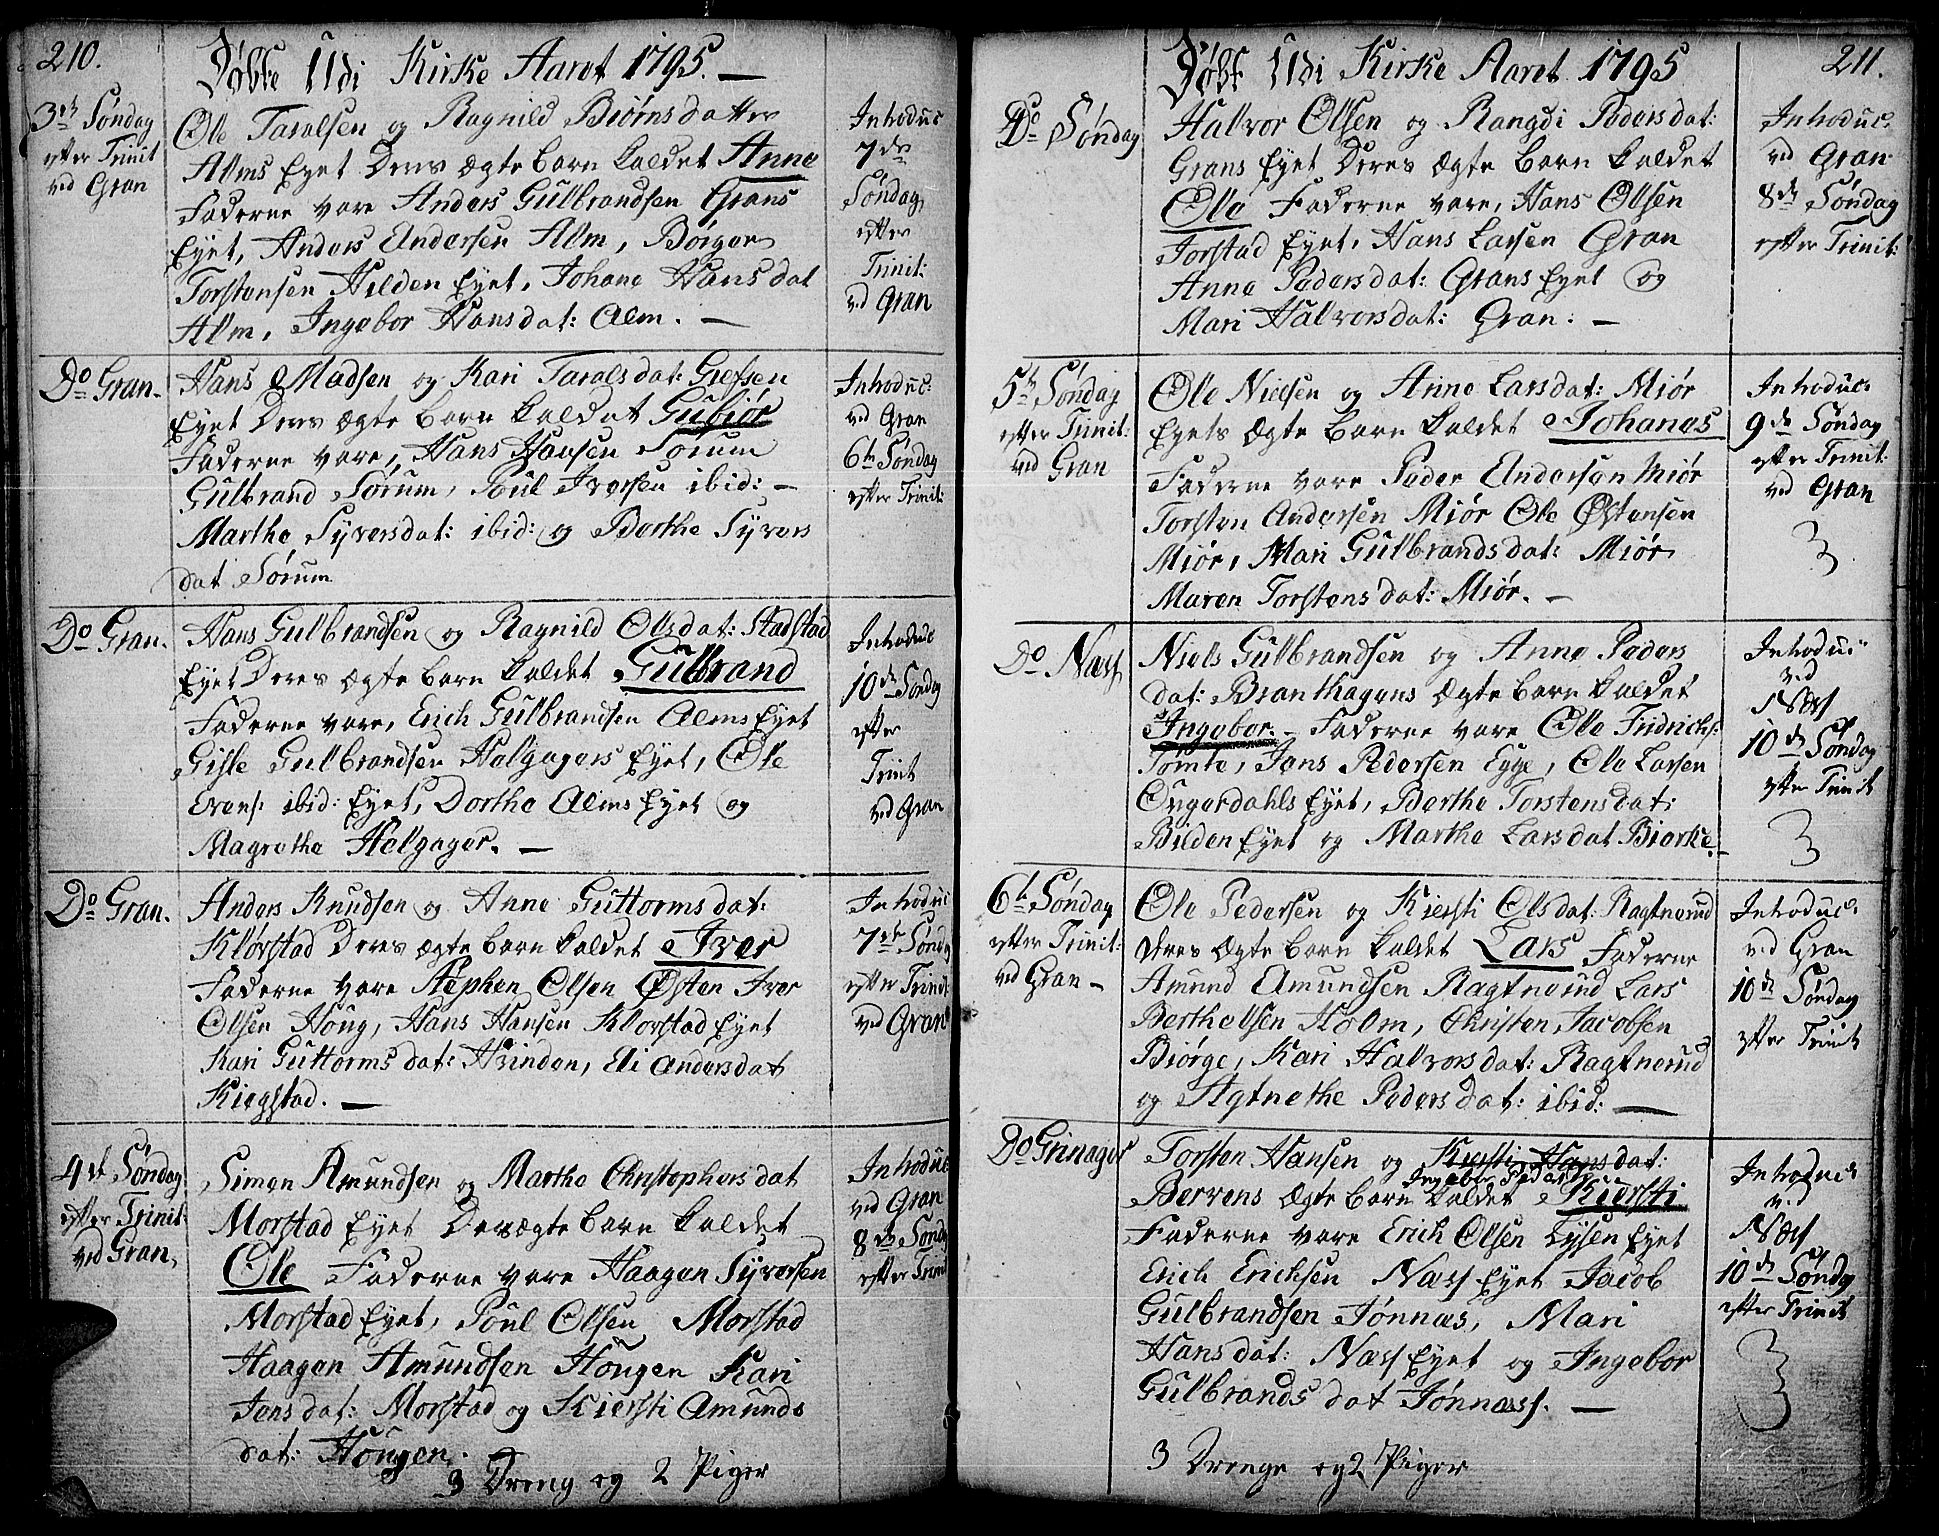 210.
Døbte Udi Kirke Aaret 1795. —
3de Søndag
efter Trinit
ved Gran
Ole Taralsen og Ragnild Biørnsdatter
Alms Eyet Deres ægte barn kaldet Anne
Faderne vare Anders Gulbrandsen Grans
Eyet, Anders Andersen Alm, Børger
Torstensen Hilden Eyet, Johane Hansdat
Alm, Ingebor Hansdat: Alm. —
Introduc
7de
Søndag
efter
Trinit:
ved Gran
Do Gran.
Hans Madsen og Kari Taralsdat: Giefsen
Eyet Deres ægte barn kaldet Gubiør
Faderne vare, Hans Hansen Sørum
Gulbrand Sørum, Poul Iversen ibid: —
Marthe Syversdat: ibid: og Berthe Syvers
dat Sørum
Introduc:
ved Gran
6te Søndag
efter Trinit:
Do Gran.
Hans Gulbrandsen og Ragnild Olsdat: Stadstad
Eyet Deres ægte barn kaldet Gulbrand
Faderne vare, Erich Gulbrandsen Alms Eyet
Gisle Gulbrandsen Halgagers Eyet, Ole
Evens: ibid: Eyet, Dorthe Alms Eyet og
Magrethe Helgager. —
Introduc
10de Søndag
efter
Trinit
ved Gran
Do Gran.
Anders Knudsen og Anne Guttormsdat:
Klørstad Deres ægte barn kaldet Iver
Faderne vare Stephen Olsen Østen Iver
Olsen Houg, Hans Hansen Klørstad Eyet
Kari Guttormsdat: Hvinden, Eli Andersdat
Kiegstad. —
Introduc
7de Søndag
efter Trinit
ved Gran
4de Søndag
efter Trinit:
ved Gran,
Simen Amundsen og Marthe Christophersdat
Morstad Eyet Deres ægte barn kaldet
Ole Faderne vare Haagen Syversen
Morstad Eyet, Poul Olsen Morstad
Haagen Amundsen Hougen Kari
Jensdat: Morstad og Kiersti Amunds
dat: Hougen.
Introduc
ved Gran
8de Søndag
efter Trinit
3 Dreng og 2 Piger
211.
Døbt Udi Kirke Aaret 1795
Do Søndag
Halvor Olsen og Rangdi Pedersdat:
Grans Eyet Deres ægte barn kaldet
Ole Faderne vare, Hans Olsen
Torstad Eyet, Hans Larsen Gran
Anne Pedersdat: Grans Eyet og
Mari Halvorsdat: Gran: —
Introduc:
ved Gran
8de Søndag
efter Trinit:
5te Søndag
efter Trinit:
ved Gran
Ole Nielsen og Anne Larsdat: Miør
Eyets ægte barn kaldet Johanes
Faderne vare Peder Andersen Miør
Torsten Andersen Miør Ole Østensen
Miør, Mari Gulbrandsdat: Miør
Maren Torstensdat: Miør. —
Introduc:
9de Søndag
efter Trinit:
ved Gran
3
Do Næss
Niels Gulbrandsen og Anne Peders
dat: Branthagens ægte barn kaldet
Ingebor: – Faderne vare Ole Fridrichs:
Tomte, Jens Pedersen Egge, Ole Larsen
Ougerdahls Eyet, Berthe Torstensdat:
Bilden Eyet og Marthe Larsdat Biorke. –
Introduc:
ved
Næss
10de Søndag
efter Trinit
3
6te Søndag
efter Trinit:
ved Gran –
Ole Pedersen og Kiersti Olsdat: Ragtnerud
deres ægte barn kaldet Lars Faderne
Amund Amundsen Ragtnerud Lars
Berthelsen Holm, Christen Jacobsen
Biørge, Kari Halvorsdat: Ragtnerud
og Agtnethe Pedersdat: ibid: —
Introduc:
ved Gran
10de Søndag
efter Trinit
Do Grinager
Torsten Hansen og Kiersti Hansdat:
Ingebor Peders
Bervens ægte barn kaldet Kiersti
Faderne vare Erich Olsen Lysen Eyet
Erich Erichsen Næss Eyet Jacob
Gulbrandsen Jønnæs, Mari
Hansdat: Næss Eyet og Ingebor
Gulbrandsdat Jønnæss. —
Introduc:
ved
Næss
10de Søndag
efter Trinit
3
3 Drenge og 2 Piger